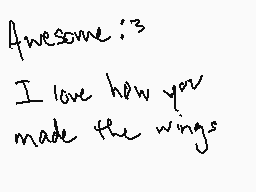 Awesome :3
I love how you
made the wings